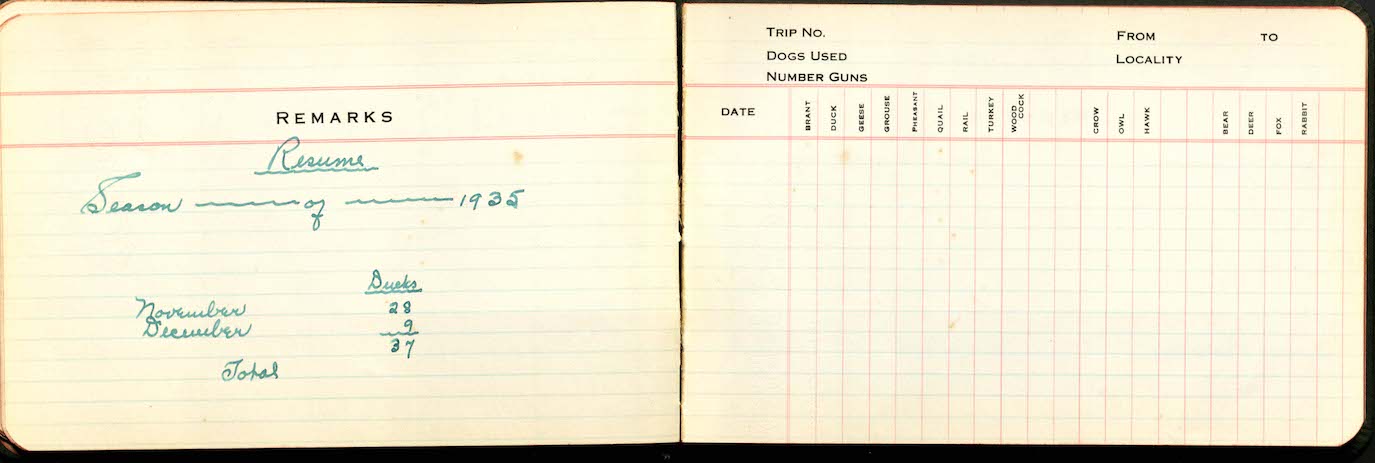 REMARKS
Resume
Season of 1935
Ducks
November 28
December 9
37
Total
TRIP NO. FROM TO
DOGS USED LOCALITY
NUMBER GUNS
DATE BRANT DUCK GEESE GROUSE PHEASANT QUAIL RAIL TURKEY WOOD COCK CROW OWL HAWK BEAR DEER FOX RABBIT